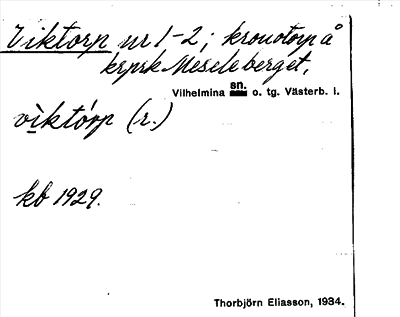 Viktorp nr 1-2; kronotorp å
krprk Meseleberget,
Vilhelmina sn. o. tg. Västerb. l.
vìktórp (r.)
kb 1929.
Thorbjörn Eliasson, 1934.